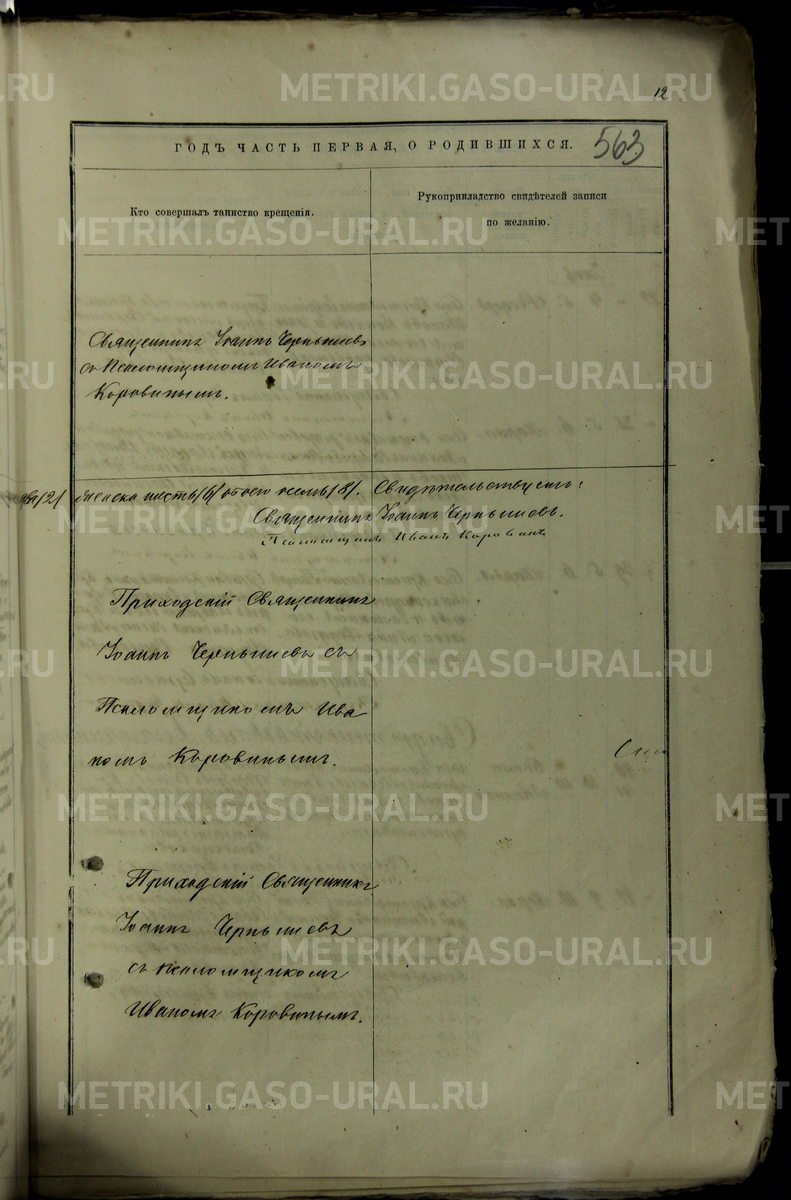 12
ГОДЪ ЧАСТЬ ПЕРВАЯ, О РОДИВШИХСЯ.
563
Кто совершалъ таинство крещенія.
Рукоприкладство свидѣтелей записи
по желанію.
Священникъ Іоаннъ Чернышевъ
съ Псаломщикомъ Иваномъ
Коровинымъ.
/2/ женска шесть /6/ обоего восемь /8/. Свидѣтельствуемъ:
Священникъ Іоаннъ Чернышевъ.
Псаломщикъ Иванъ Коровинъ
Приходскій Священникъ
Іоаннъ Чернышевъ съ
Псаломщикомъ Ива
номъ Коровинымъ.
Приходскій Священникъ
Іоаннъ Чернышевъ
съ псаломщикомъ
Иваномъ Коровинымъ.
METRIKI.GASO-URAL.RU